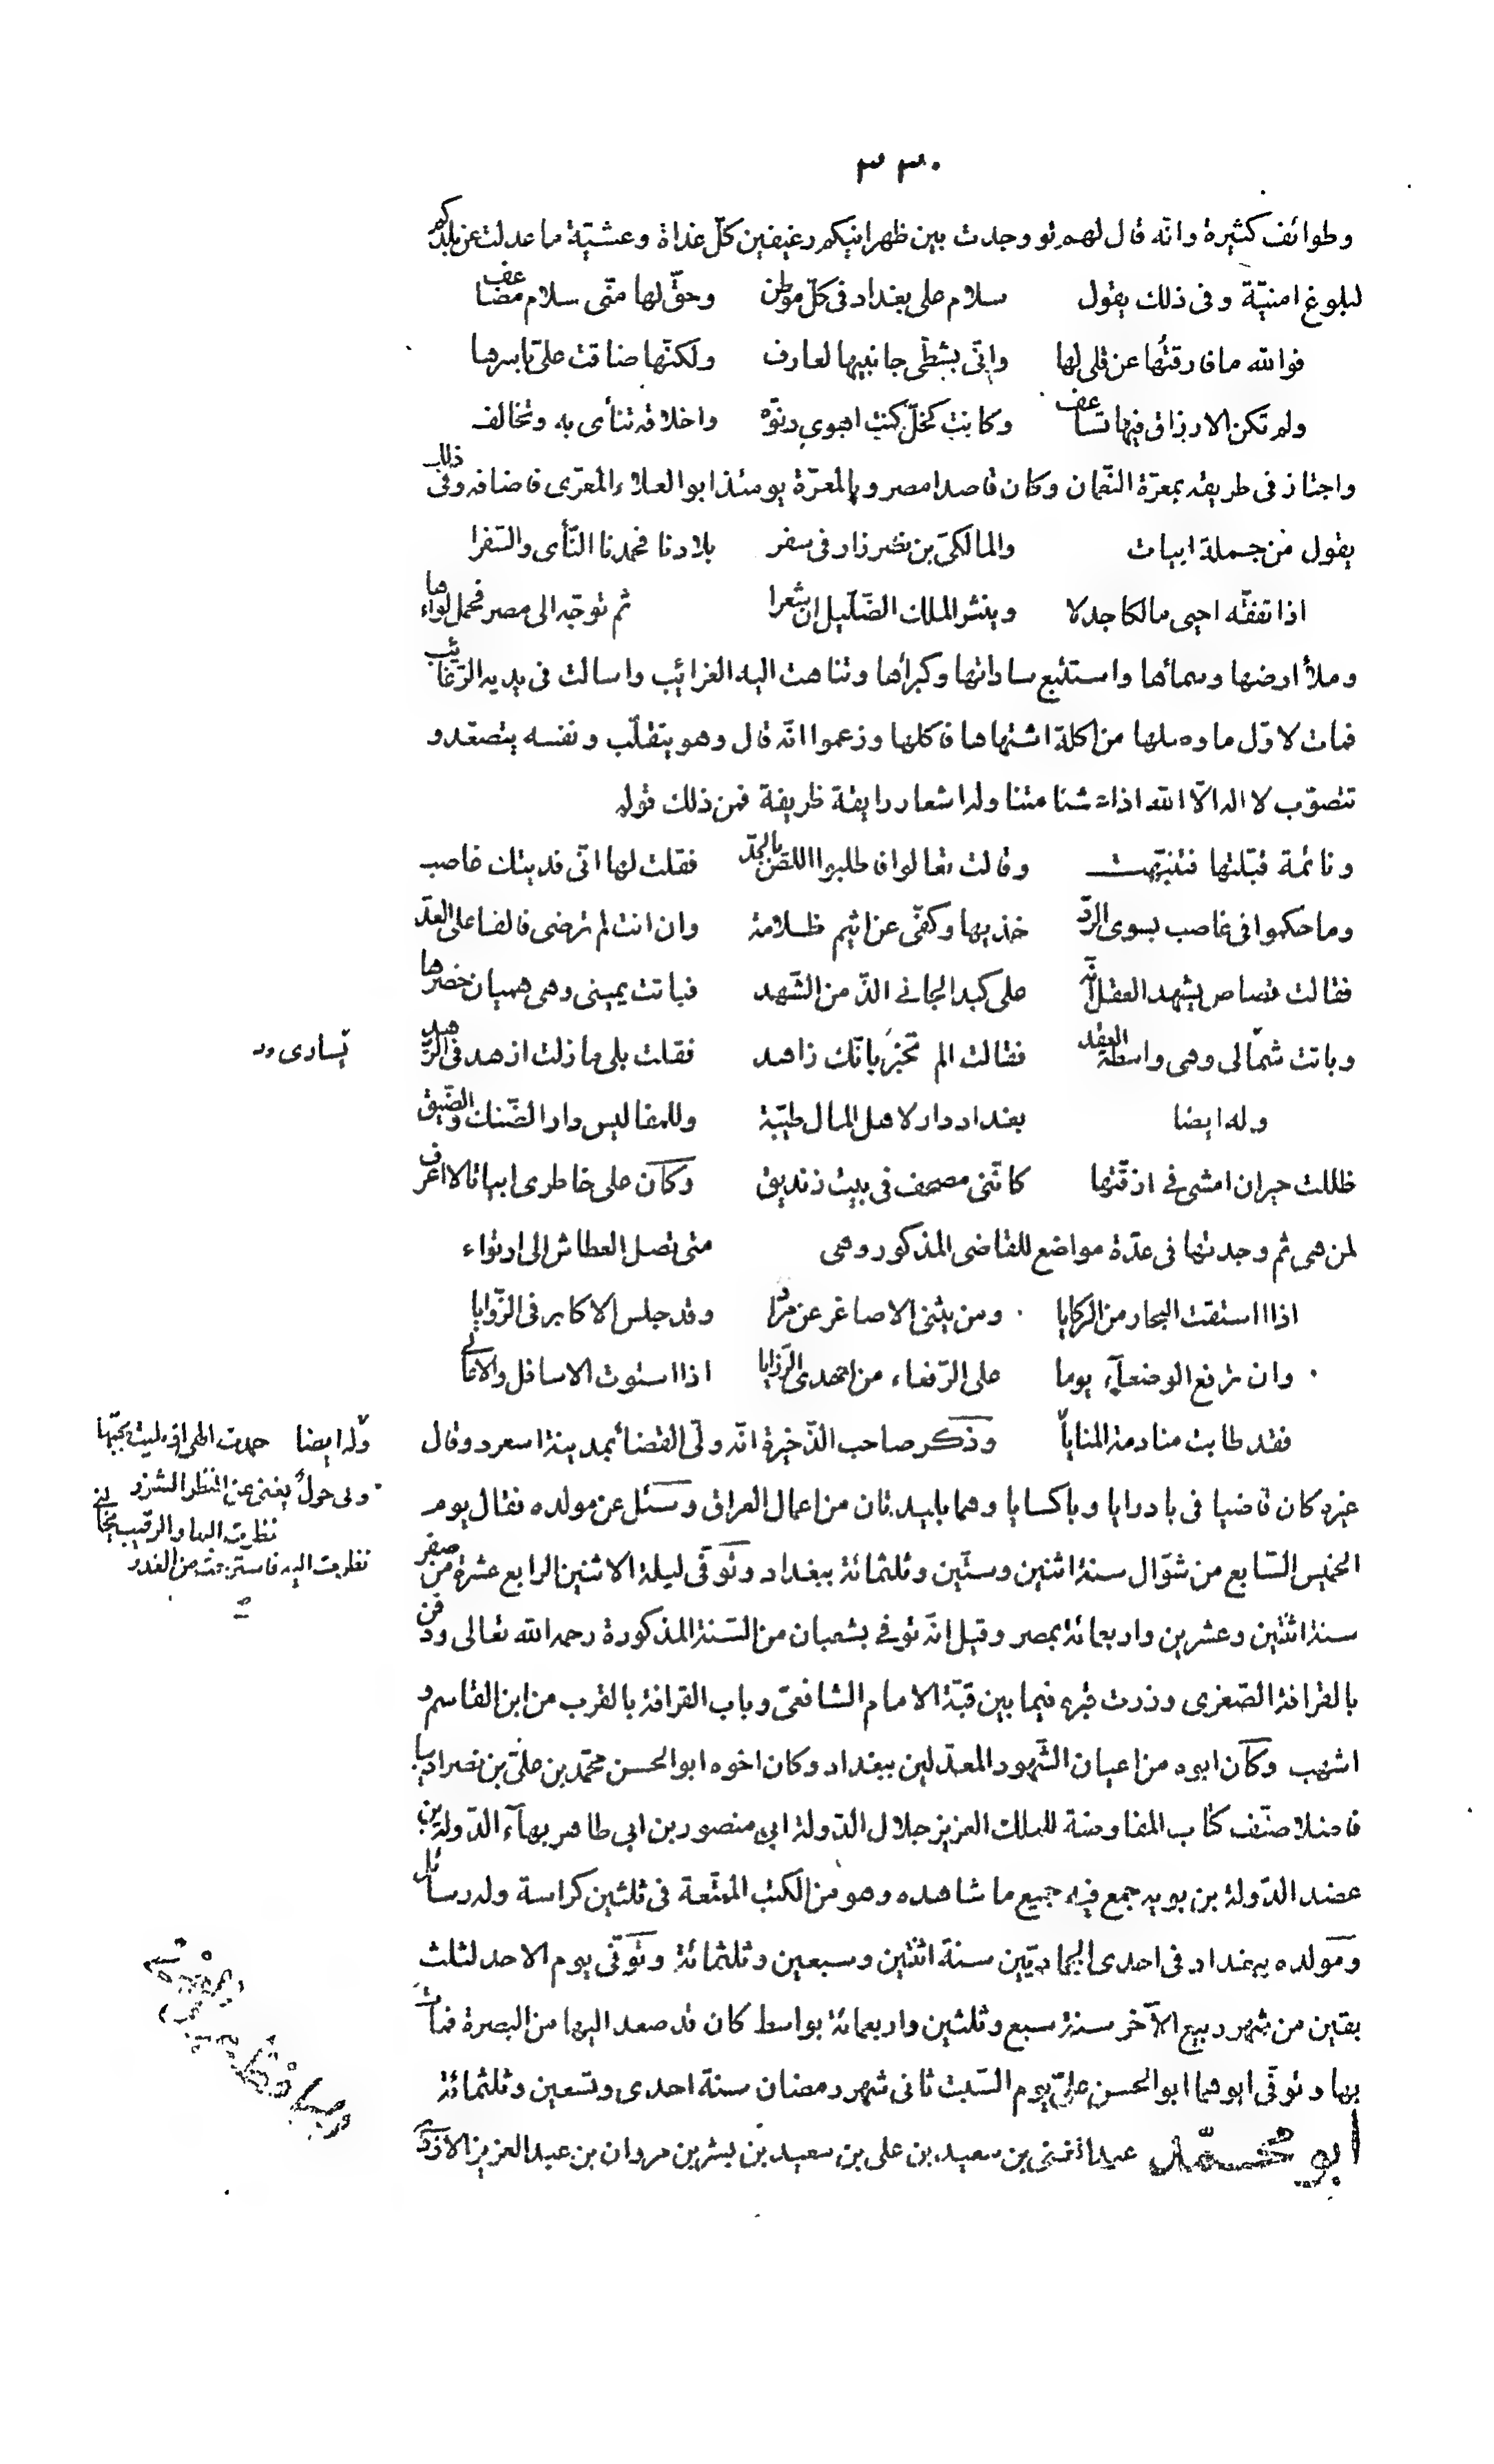 ٣٣٠
وطوائف كثيرة وانّه قال لهم لو وجدت بين ظهرانيكم رغيفين كلّ غداة وعشيّة ما عدلت عن بلدكم
لبلوغ امنيّة وفى ذلك يقول سلام على بغداد فى كلّ موطن وحقّ لها منّى سلام مضاعف
فوالله ما فارقتُها عن قلى لها وانّى بشطّى جانبيها لعارف ولكنّها ضاقت علىّ باسرها
ولم تكن الارزاق فيها تساعف وكانت كخلّ كنت اهوى دنوّه واخلاقه تنأى به وتخالف
واجتاز فى طريقه بمعرّة النّعمان وكان قاصدا مصر وبالمعرّة يومئذ ابو العلاء المعرّى فاضافه وفى ذلك
يقول من جملة ابيات والمالكىّ بن نصر زار فى سفر بلادنا فحمدنا النّأى والسّفرا
اذا تفقّه احيى مالكا جدلا وينشر الملك الضّلّيل ان شعرا ثم توجّه الى مصر فحمل لواءها
وملأ ارضها وسمائها واستتبع ساداتها وكبرائها وتناهت اليه الغرائب واسالت فى يديه الرّغائب
فمات لاوّل ما وصلها من اكلة اشتهاها فاكلها وزعموا انّه قال وهو يتقلّب ونفسه يتصعّد و
تتصوّب لا اله الّا الله اذا عشنا متنا وله اشعار رايقة ظريفة فمن ذلك قوله
ونائمة قبّلتها فتنبّهت وقالت تعالوا فاطلبوا اللصّ بالحدّ فقلت لها انّى فديتك غاصب
وما حكموا فى غاصب بسوى الردّ خذيها وكفّى عن اثيم ظلامة وان انت لم ترضى فالفا على العدّ
فقالت قصاص يشهد العقل انّه على كبد الجانى الذّ من الشّهد فباتت يمينى وهى هميان خصرها
وباتت شمالى وهى واسطة العقد فقالت الم تخبر بانّك زاهد فقلت بلى ما زلت ازهد فى الزّهد
يسارى
وله ايضا بغداد دار لاهل المال طيّبة وللمفاليس دار الضّنك والضّيق
ظللت حيران امشى فى ازقّتها كانّنى مصحف فى بيت زنديق وكان على خاطرى ابياتا لا اعرف
لمن هى ثم وجدتها فى عدّة مواضع للقاضى المذكور وهى متى تصل العطاش الى ارتواء
اذا استقت البحار من الركايا ومن يثنى الاصاغر عن مراد وقد جلس الاكابر فى الزّوايا
وان ترفع الوضعآء يوما على الرّفعاء من احدى الرّزايا اذا استوت الاسافل والاعالى
فقد طابت منادمة المنايا وذكر صاحب الذّخيرة انّه ولى القضاء بمدينة اسعرد وقال
وله ايضا حمدت الهى اذ بليت بحبّها
وبى حول يغنى عن النّظر الشزر
نظرت اليها والرقيب يخالنى
نظرت اليه فاسترحت من العذر
غيره كان قاضيا فى بادرايا وباكسايا وهما بليدتان من اعمال العراق وسئل عن مولده فقال يوم
الخميس السّابع من شوّال سنة اثنين وستّين وثلثمائة ببغداد وتوفّى ليلة الاثنين الرابع عشرة من صفر
سنة اثنتين وعشرين واربعمائة بمصر وقيل انّه توفى بشعبان من السّنة المذكورة رحمه الله تعالى ودفن
بالقرافة الصّغرى وزرت قبره فيما بين قبّة الامام الشافعىّ وباب القرافة بالقرب من ابن القاسم و
اشهب وكان ابوه من اعيان الشّهود المعدّلين ببغداد وكان اخوه ابو الحسن محمّد بن علىّ بن نصر اديبا
فاضلا صنّف كتاب المفاوضة للملك العزيز جلال الدّولة ابى منصور بن ابى طاهر بهآء الدّولة بن
عضد الدّولة بن بويه جمع فيه جميع ما شاهده وهو من الكتب الممتّعة فى ثلثين كراسة وله رسائل
ومولده ببغداد فى احدى الجماديّين سنة اثنتين وسبعين وثلثمائة وتوفّى يوم الاحد لثلث
بقين من شهر ربيع الآخر سنة سبع وثلثين واربعمائة بواسط كان قد صعد اليها من البصرة فمات
بها وتوفّى ابوهما ابو الحسن علىّ يوم السّبت ثانى شهر رمضان سنة احدى وتسعين وثلثمائة
ابو محمّد عبد الغنى بن سعيد بن على بن سعيد بن بشر بن مروان بن عبد العزيز الازدى